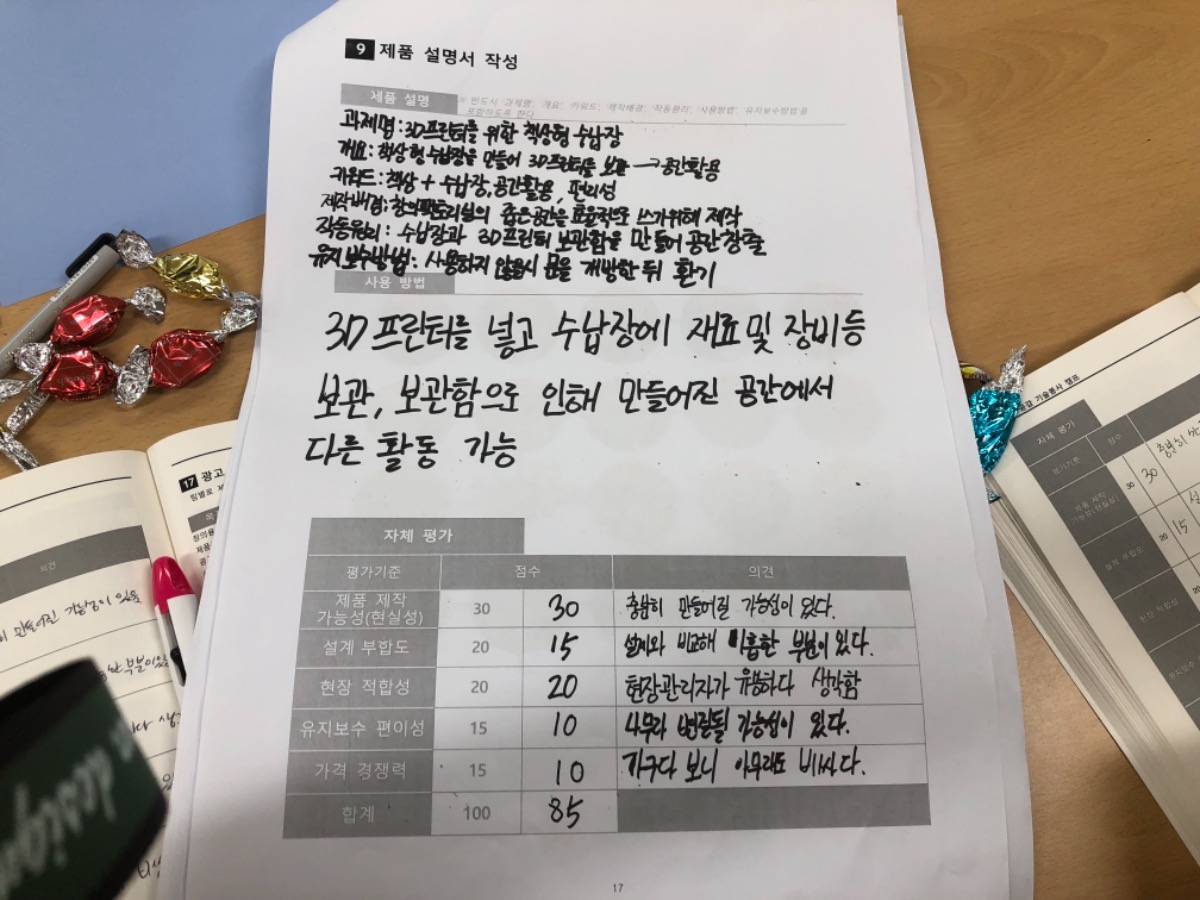 9 제품 설명서 작성
제품 설명
※ 반드시 '과제명', '개요', '키워드', '제작배경', '작동원리', '사용방법', '유지보수방법'을
포함하도록 한다
과제명 : 3D프린터를 위한 책상형 수납장
개요 : 책상형 수납장을 만들어 3D프린터를 보관 → 공간활용
키워드 : 책상 + 수납장, 공간활용, 편의성
제작배경 : 창의팩토리실의 좁은공간을 효율적으로 쓰기위해 제작
작동원리 : 수납장과 3D프린터 보관함을 만들어 공간창출
유지보수방법 : 사용하지 않을시 문을 개방한 뒤 환기
사용 방법
3D프린터를 넣고 수납장에 재료및 장비등
보관, 보관함으로 인해 만들어진 공간에서
다른 활동 가능
자체 평가
평가기준 점수 의견
제품 제작
가능성(현실성) 30 30 충분히 만들어질 가능성이 있다.
설계 부합도 20 15 설계와 비교해 미흡한 부분이 있다.
현장 적합성 20 20 현장관리자가 유용하다 생각함
유지보수 편이성 15 10 나무라 변질될 가능성이 있다.
가격 경쟁력 15 10 가구다 보니 아무래도 비싸다.
합계 100 85
17
17 광고
팀별로
의견
기술봉사 캠프
자체 평가
평가기준 점수
제품 제작
가능성(현실성) 30 30
설계 부합도 20 15
현장 적합성 20
design